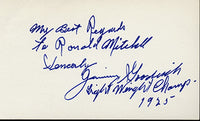 My Best Regards
To Ronald Mitchell
Sincerely
Jimmy Goodrich
Light Weight Champ-
1925